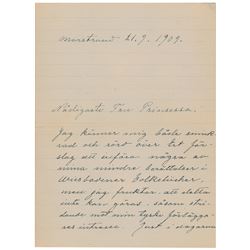 Marstrand 21.9.1909.
Nådigaste Fru Prinsessa.
Jag känner mig både smick-
rad och rörd över det för-
slag att utföra några av
mina mindre berättelser i
Wiesbadener Volksbücher,
men jag fruktar att detta
inte kan göras, såsom stri-
dande mot min tyske förläggа-
res intresse. Just i dagarna